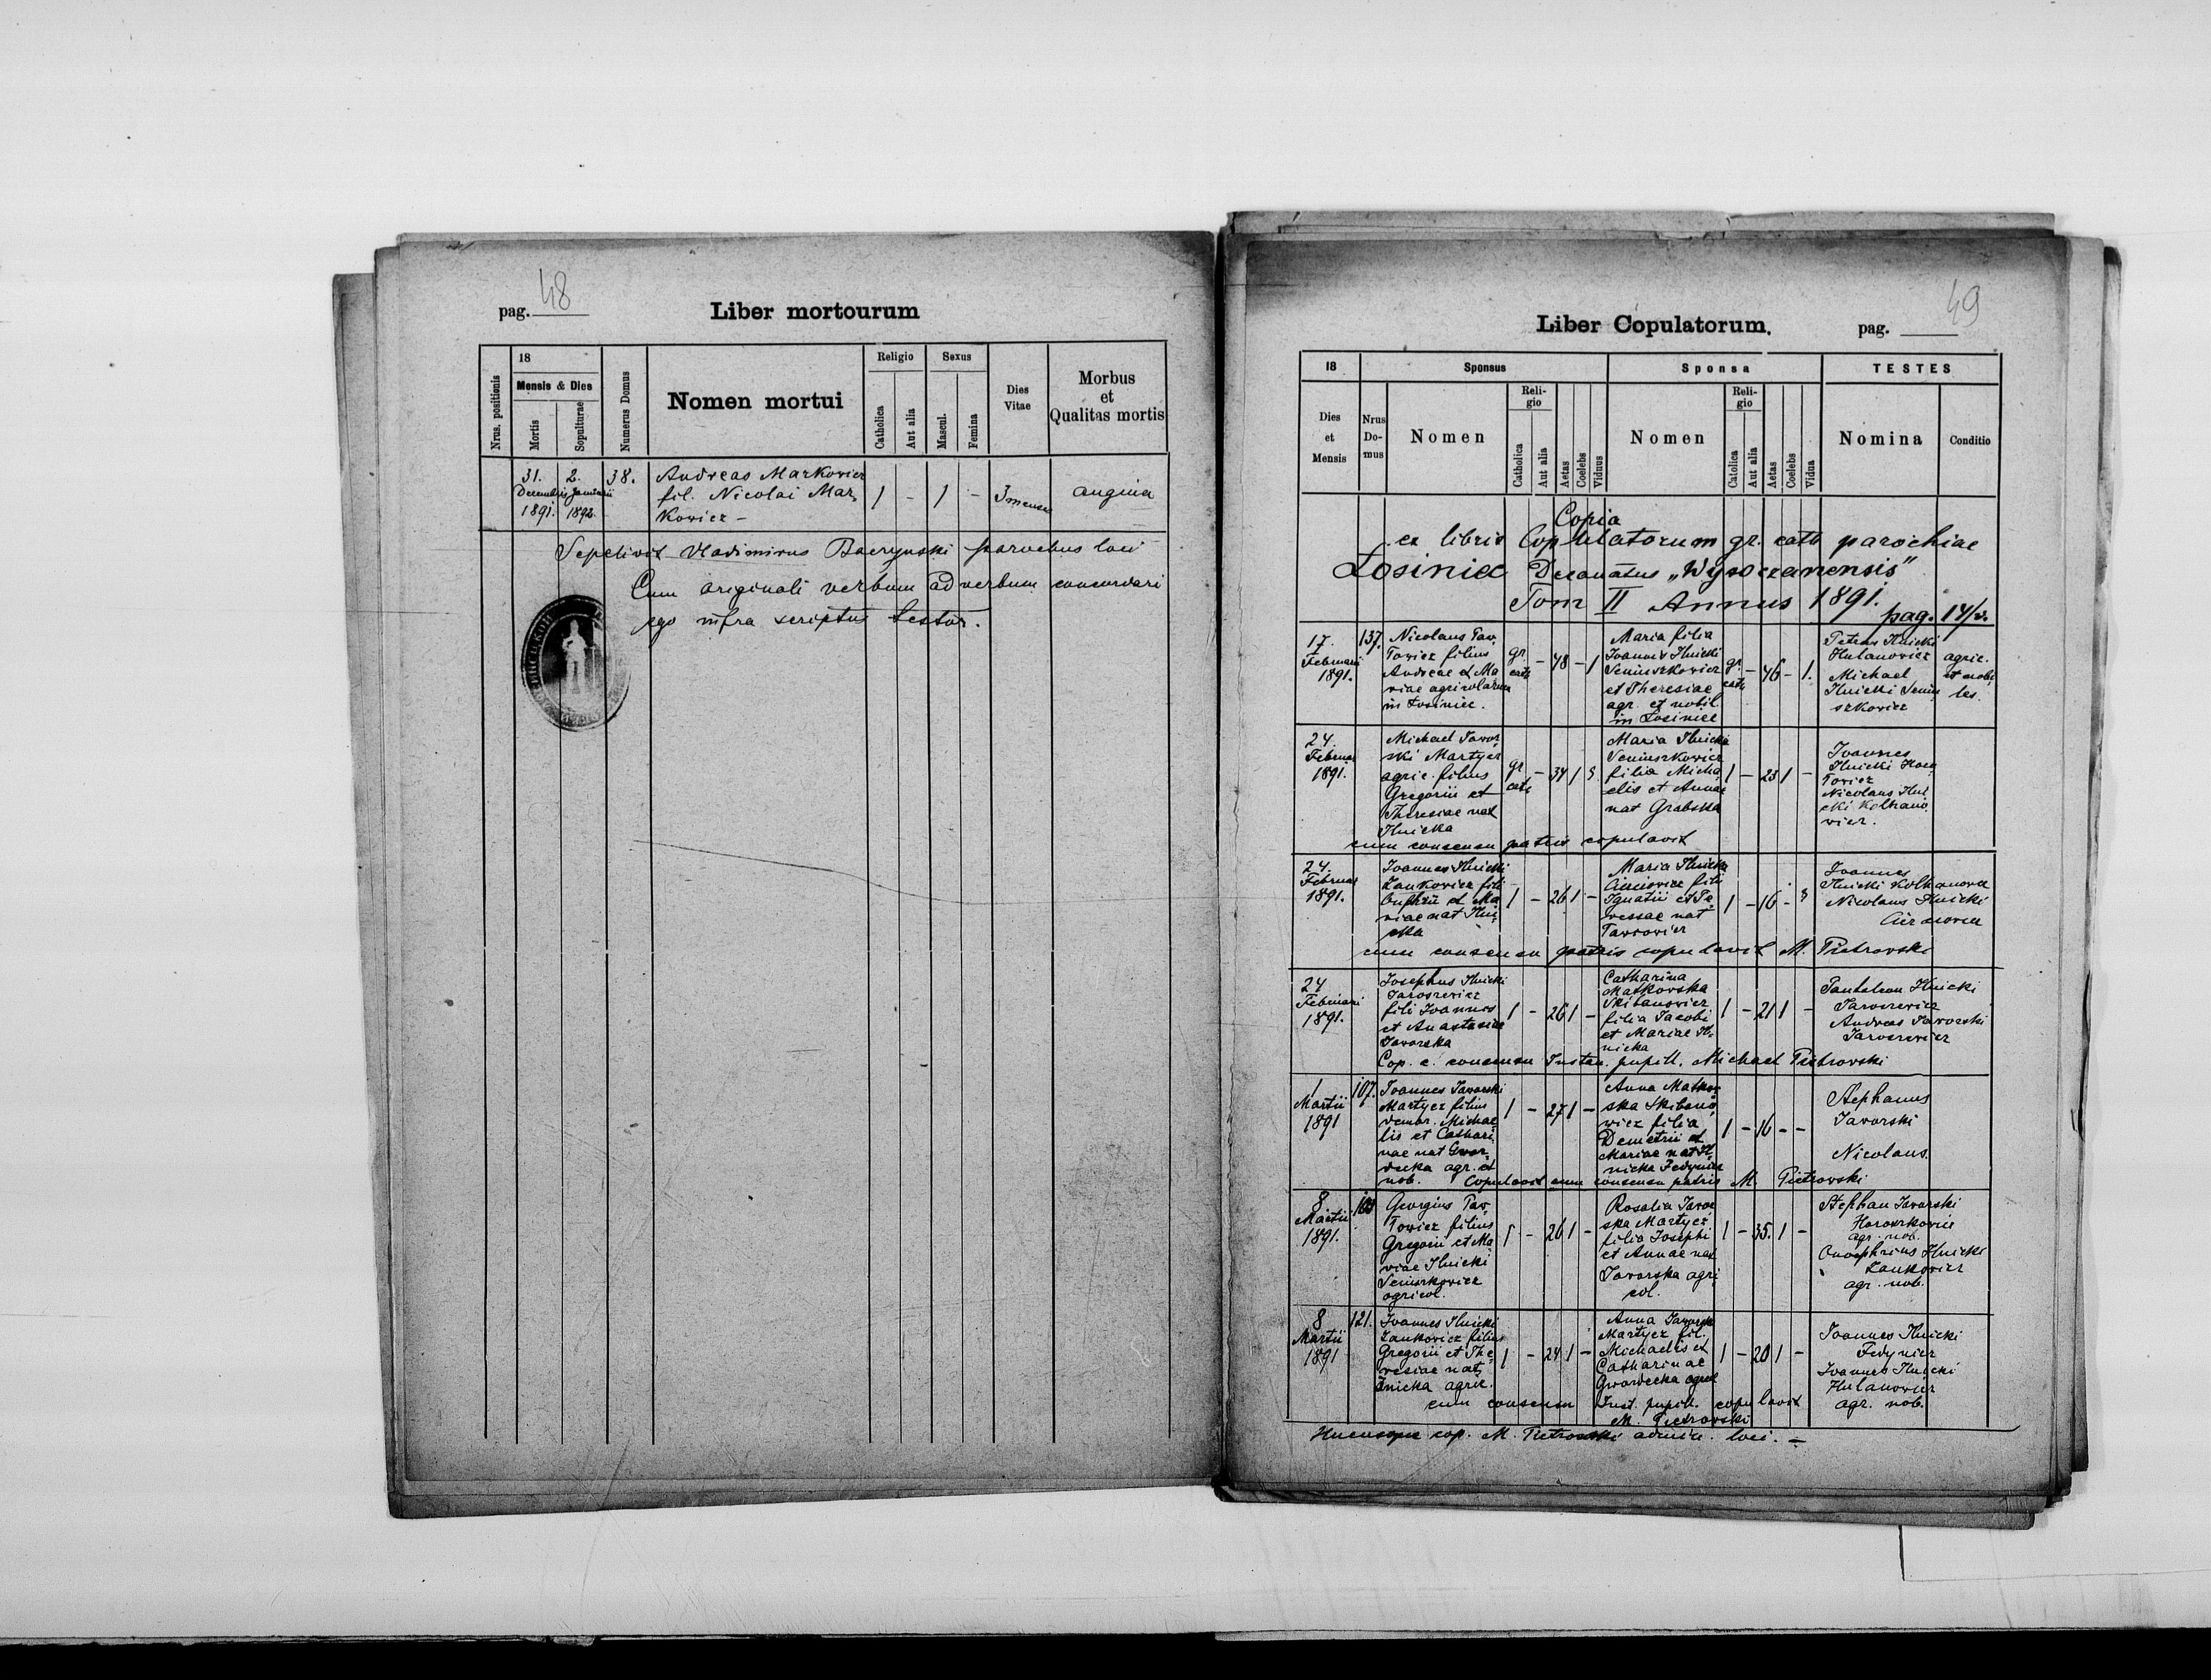 pag. 48
Liber mortourum
Nrus. positionis
18
Mensis & Dies
Mortis
Sopulturae
Numerus Domus
Nomen mortui
Religio
Catholica
Aut alia
Sexus
Mascul.
Femina
Dies
Vitae
Morbus
et
Qualitas mortis
31. 2. 38. Andreas Markowicz
Decembris Januarii fil. Nicolai Mar, 1 - 1 - 3 mense angina
1891. 1892. kowicz -
Sepelivit Vladimirus Baczynski parochus loci
Cum originali verbum ad verbum concordari
ego infra scriptus testor.
Liber Copulatorum.
pag. 49
18
Sponsus
Sponsa
TESTES
Dies
et
Mensis
Nrus
Do-
mus
Nomen
Reli-
gio
Catholica
Aut alia
Aetas
Coelebs
Viduus
Nomen
Reli-
gio
Catolica
Aut alia
Aetas
Coelebs
Vidua
Nomina
Conditio
Copia
ex libris Copulatorum gr. cath parochiae
Łosiniec Decanatus „Wysoczanensis"
Tom II Annus 1891. pag. 14/
17. Februarii 1891.
137.
Nicolaus Taw,
Towicz filius
Andreae et Ma
riae agricolarum
in Łosiniec.
gr. cath - 48 - 1
Maria filia
Ioannis Ilnicki
Seniuszkowicz
et Theresiae
agr. et nobil.
in Łosiniec
gr. cath - 46 - 1.
Petrus Ilnicki
Hulanowicz
Michael
Ilnicki Seniu
szkowicz
agric.
et nobi,
les.
24. Februar 1891.
Michael Jawor
ski Martycz
agric. filius
Gregorii et
Theresiae nat
Ilnicka
gr. cath - 34 1
Maria Ilnicka
Seniuszkowicz
filia Micha
elis et Annae
nat Grabska
1 - 23 1 -
Ioannes
Ilnicki
Towicz
Nicolaus Ilni
cki Kolhano
wicz.
cum consensu patris copulavit
24. Februar 1891.
Ioannes Ilnicki
Zankowicz fili
Onufrii et Ma
riae nat Ilni
cka
1 - 26 1 -
Maria Ilnicka
fili
Ignatii et Te
ressae nat
1 - 16 -
Ioannes
Ilnicki Kolhanowicz
Nicolaus Ilnicki
cum consensu patris copulavit M. Pietrowski
24 Februari 1891.
Josephus Ilnicki
Jaroszewicz
fili Ioannis
et Anastasiae
Jaworska
1 - 26 1 -
Catharina
Matkowska
Skibanowicz
filia Jacobi
et Mariae Il,
nicka
1 - 21 1 -
Pantaleon Ilnicki
Jaroszewicz
Andreas Jaworski
Jaroszewicz
Cop. c. consensu Instan. pupill. Michael Pietrowski
1 Martii 1891
107.
Ioannes Jaworski
Martycz filius
Michae
lis et Cathari
nae nat Gwoz
decka agr. et
nob.
1 - 27 1 -
Anna Matkow
ska Skibano
wicz filia
Demetrii et
Mariae nat Il,
nicka Fedynicz
1 - 16 - -
Stephanus
Jaworski
Nicolaus
Copulavit cum consensu patris M. Pietrowski
8 Martii 1891.
Georgius Taw,
Towicz filius
Gregorii et Ma
riae Ilnicki
Seniuszkowicz
agricol.
1 - 26 1 -
Rosalia Jawor
ska Martycz
filia Josephi
et Annae nat
Jaworska agri
col.
1 - 35. 1 -
Stephan Jaworski
agr. nob.
Onophrius Ilnicki
Zankowicz
agr. nob.
8 Martii 1891
121.
Ioannes Ilnicki
Zankowicz filius
Gregorii et The
resiae nat
Ilnicka agric.
1 - 24 1 -
Anna Jaworska
Martycz fil.
Michaelis et
Catharinae
1 - 20 1 -
Ioannes Ilnicki
Fedynicz
Ioannes Ilnicki
Hulanowicz
agr. nob.
cum consensu Inst. pupill. copulavit
M. Pietrowski
Hucusque cop. M. Pietrowski admin. loci. -